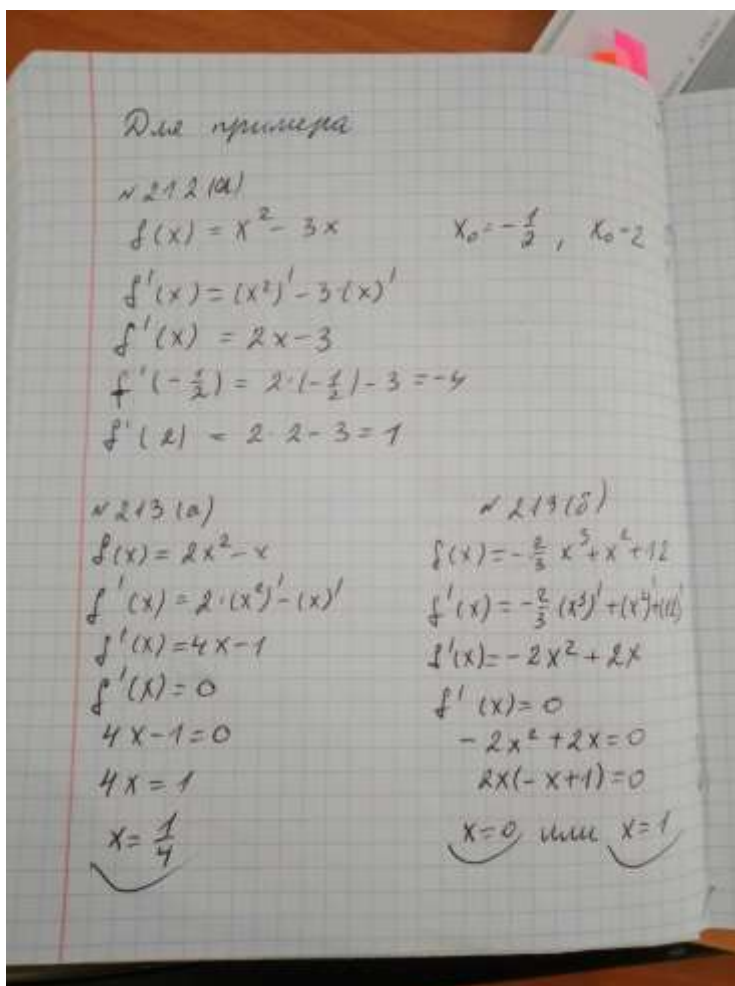 Для примера
№212(а)
f(x) = x² - 3x   x₀ = -1/2, x₀ = 2
f'(x) = (x²)' - 3·(x)'
f'(x) = 2x - 3
f'(-1/2) = 2·(-1/2) - 3 = -4
f'(2) = 2·2 - 3 = 1
№213(а)
f(x) = 2x² - x
f'(x) = 2·(x²)' - (x)'
f'(x) = 4x - 1
f'(x) = 0
4x - 1 = 0
4x = 1
x = 1/4
№213(б)
f(x) = -2/3 x³ + x² + 12
f'(x) = -2/3 (x³)' + (x²)' + (12)'
f'(x) = -2x² + 2x
f'(x) = 0
-2x² + 2x = 0
2x(-x+1) = 0
x = 0 или x = 1